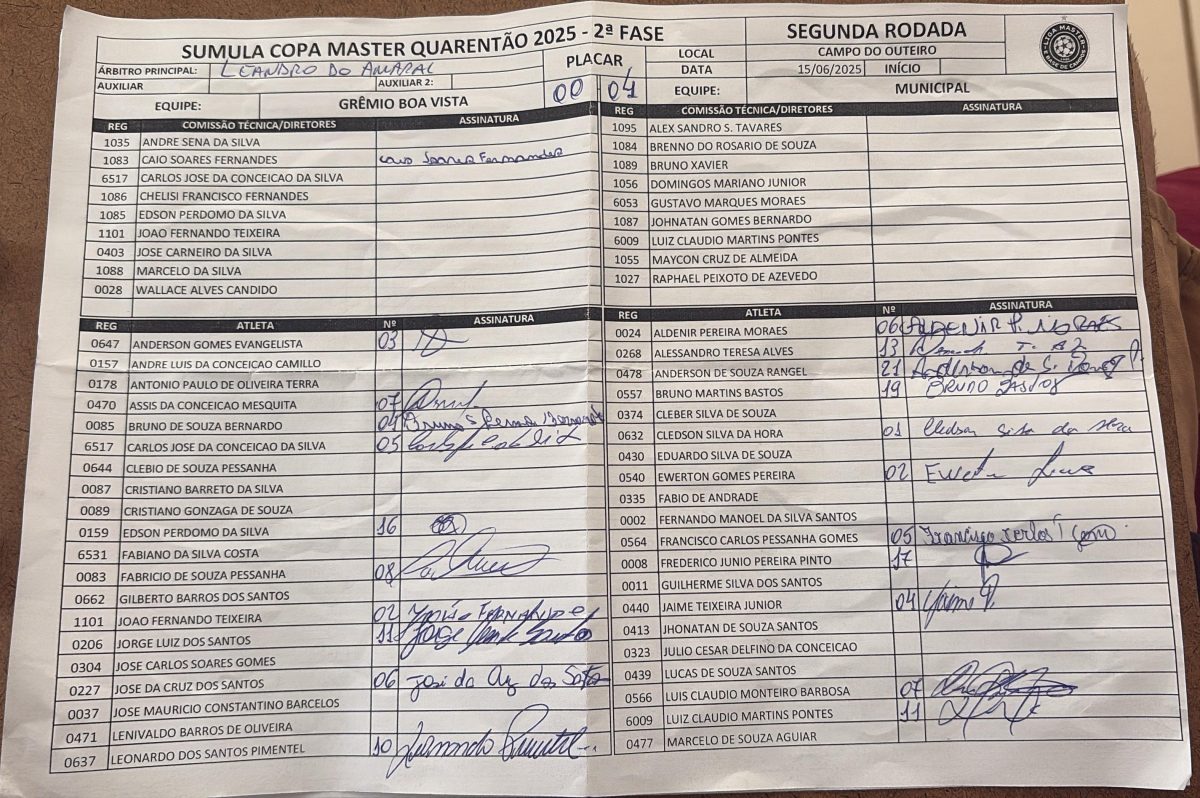 SUMULA COPA MASTER QUARENTÃO 2025 - 2ª FASE
SEGUNDA RODADA
LIGA MASTER
BASE DE CAMPOS
ÁRBITRO PRINCIPAL: LEANDRO DO AMARAL
PLACAR
LOCAL CAMPO DO OUTEIRO
AUXILIAR AUXILIAR 2:
DATA 15/06/2025 INÍCIO
EQUIPE: GRÊMIO BOA VISTA 00 04 EQUIPE: MUNICIPAL
REG COMISSÃO TÉCNICA/DIRETORES ASSINATURA
1035 ANDRE SENA DA SILVA
1083 CAIO SOARES FERNANDES Caio Soares Fernandes
6517 CARLOS JOSE DA CONCEICAO DA SILVA
1086 CHELISI FRANCISCO FERNANDES
1085 EDSON PERDOMO DA SILVA
1101 JOAO FERNANDO TEIXEIRA
0403 JOSE CARNEIRO DA SILVA
1088 MARCELO DA SILVA
0028 WALLACE ALVES CANDIDO
REG ATLETA Nº ASSINATURA
0647 ANDERSON GOMES EVANGELISTA 03
0157 ANDRE LUIS DA CONCEICAO CAMILLO
0178 ANTONIO PAULO DE OLIVEIRA TERRA
0470 ASSIS DA CONCEICAO MESQUITA 07
0085 BRUNO DE SOUZA BERNARDO 04
6517 CARLOS JOSE DA CONCEICAO DA SILVA 05
0644 CLEBIO DE SOUZA PESSANHA
0087 CRISTIANO BARRETO DA SILVA
0089 CRISTIANO GONZAGA DE SOUZA
0159 EDSON PERDOMO DA SILVA 16
6531 FABIANO DA SILVA COSTA
0083 FABRICIO DE SOUZA PESSANHA 08
0662 GILBERTO BARROS DOS SANTOS
1101 JOAO FERNANDO TEIXEIRA 02
0206 JORGE LUIZ DOS SANTOS 11 Jorge Santos
0304 JOSE CARLOS SOARES GOMES
0227 JOSE DA CRUZ DOS SANTOS 06 José da Cruz dos Santos
0037 JOSE MAURICIO CONSTANTINO BARCELOS
0471 LENIVALDO BARROS DE OLIVEIRA
0637 LEONARDO DOS SANTOS PIMENTEL 10
REG COMISSÃO TÉCNICA/DIRETORES ASSINATURA
1095 ALEX SANDRO S. TAVARES
1084 BRENNO DO ROSARIO DE SOUZA
1089 BRUNO XAVIER
1056 DOMINGOS MARIANO JUNIOR
6053 GUSTAVO MARQUES MORAES
1087 JOHNATAN GOMES BERNARDO
6009 LUIZ CLAUDIO MARTINS PONTES
1055 MAYCON CRUZ DE ALMEIDA
1027 RAPHAEL PEIXOTO DE AZEVEDO
REG ATLETA Nº ASSINATURA
0024 ALDENIR PEREIRA MORAES 06 ALDENIR P. MORAES
0268 ALESSANDRO TERESA ALVES 13
0478 ANDERSON DE SOUZA RANGEL 21 Anderson de S.
0557 BRUNO MARTINS BASTOS 19 BRUNO BASTOS
0374 CLEBER SILVA DE SOUZA
0632 CLEDSON SILVA DA HORA 01 Cledson Silva da Hora
0430 EDUARDO SILVA DE SOUZA
0540 EWERTON GOMES PEREIRA 02
0335 FABIO DE ANDRADE
0002 FERNANDO MANOEL DA SILVA SANTOS
0564 FRANCISCO CARLOS PESSANHA GOMES 05 Francisco Carlos
0008 FREDERICO JUNIO PEREIRA PINTO 17
0011 GUILHERME SILVA DOS SANTOS
0440 JAIME TEIXEIRA JUNIOR 04 Jaime
0413 JHONATAN DE SOUZA SANTOS
0323 JULIO CESAR DELFINO DA CONCEICAO
0439 LUCAS DE SOUZA SANTOS
0566 LUIS CLAUDIO MONTEIRO BARBOSA 07
6009 LUIZ CLAUDIO MARTINS PONTES 11
0477 MARCELO DE SOUZA AGUIAR